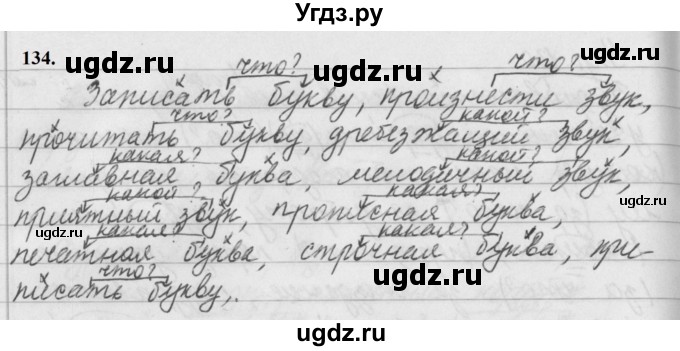 Угдз.ру
134.
что? что?
Записать букву, произнести звук,
что? какой?
прочитать букву, дребезжащий звук,
какая? какой?
заглавная буква, мелодичный звук,
какой? какая?
приятный звук, прописная буква,
какая? какая?
печатная буква, строчная буква, при-
что?
писать букву,.
ugdz.ru
ugdz.ru
ugdz.ru
ugdz.ru
ugdz.ru
ugdz.ru
ugdz.ru
ugdz.ru